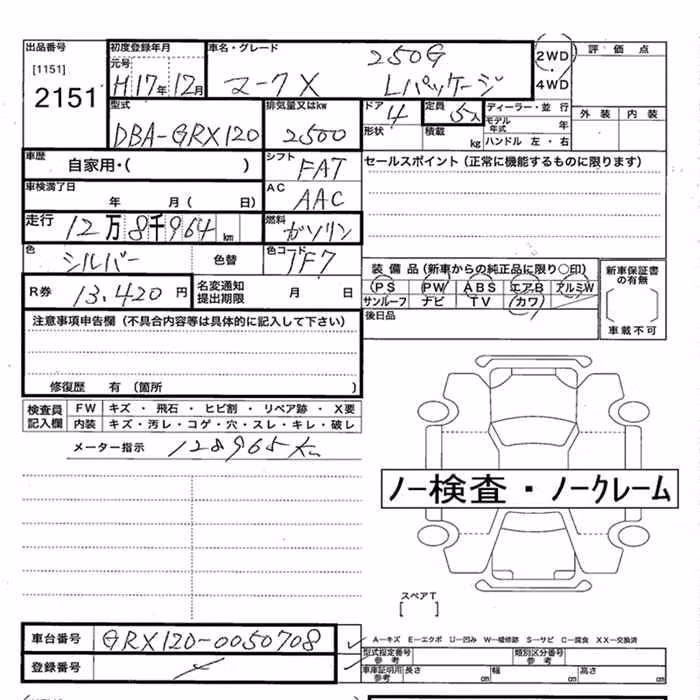 出品番号 初度登録年月 車名・グレード 評価点
[1151] 元号 250G 2WD
2151 H17年12月 マークX Lパッケージ 4WD
型式 排気量又はkw ドア 定員 ディーラー・並行 外装 内装
DBA-GRX120 2500 4 5人 モデル年式 年
形状 積載 kg ハンドル 左・右
車歴 自家用・( ) シフト FAT セールスポイント(正常に機能するものに限ります)
車検満了日 年 月( 日) AC AAC
走行 12万8千964km 燃料 ガソリン
色 シルバー 色替 色コード 1F7
装備品(新車からの純正品に限り○印) 新車保証書の有無
R券 13.420円 名変通知提出期限 月 日 PS PW ABS エアB アルミW
サンルーフ ナビ TV カワ
注意事項申告欄(不具合内容等は具体的に記入して下さい) 後日品 車載不可
修復歴 有(箇所 )
検査員記入欄 FW キズ・飛石・ヒビ割・リペア跡・X要
内装 キズ・汚レ・コゲ・穴・スレ・キレ・破レ
メーター指示 128965km
ノー検査・ノークレーム
スペアT
[ ]
車台番号 GRX120-0050708 A-キズ E-エクボ U-凹み W-補修跡 S-サビ C-腐食 XX-交換済
登録番号 型式指定番号 参考 類別区分番号 参考
車庫証明用 参考 長さ cm 幅 cm 高さ cm